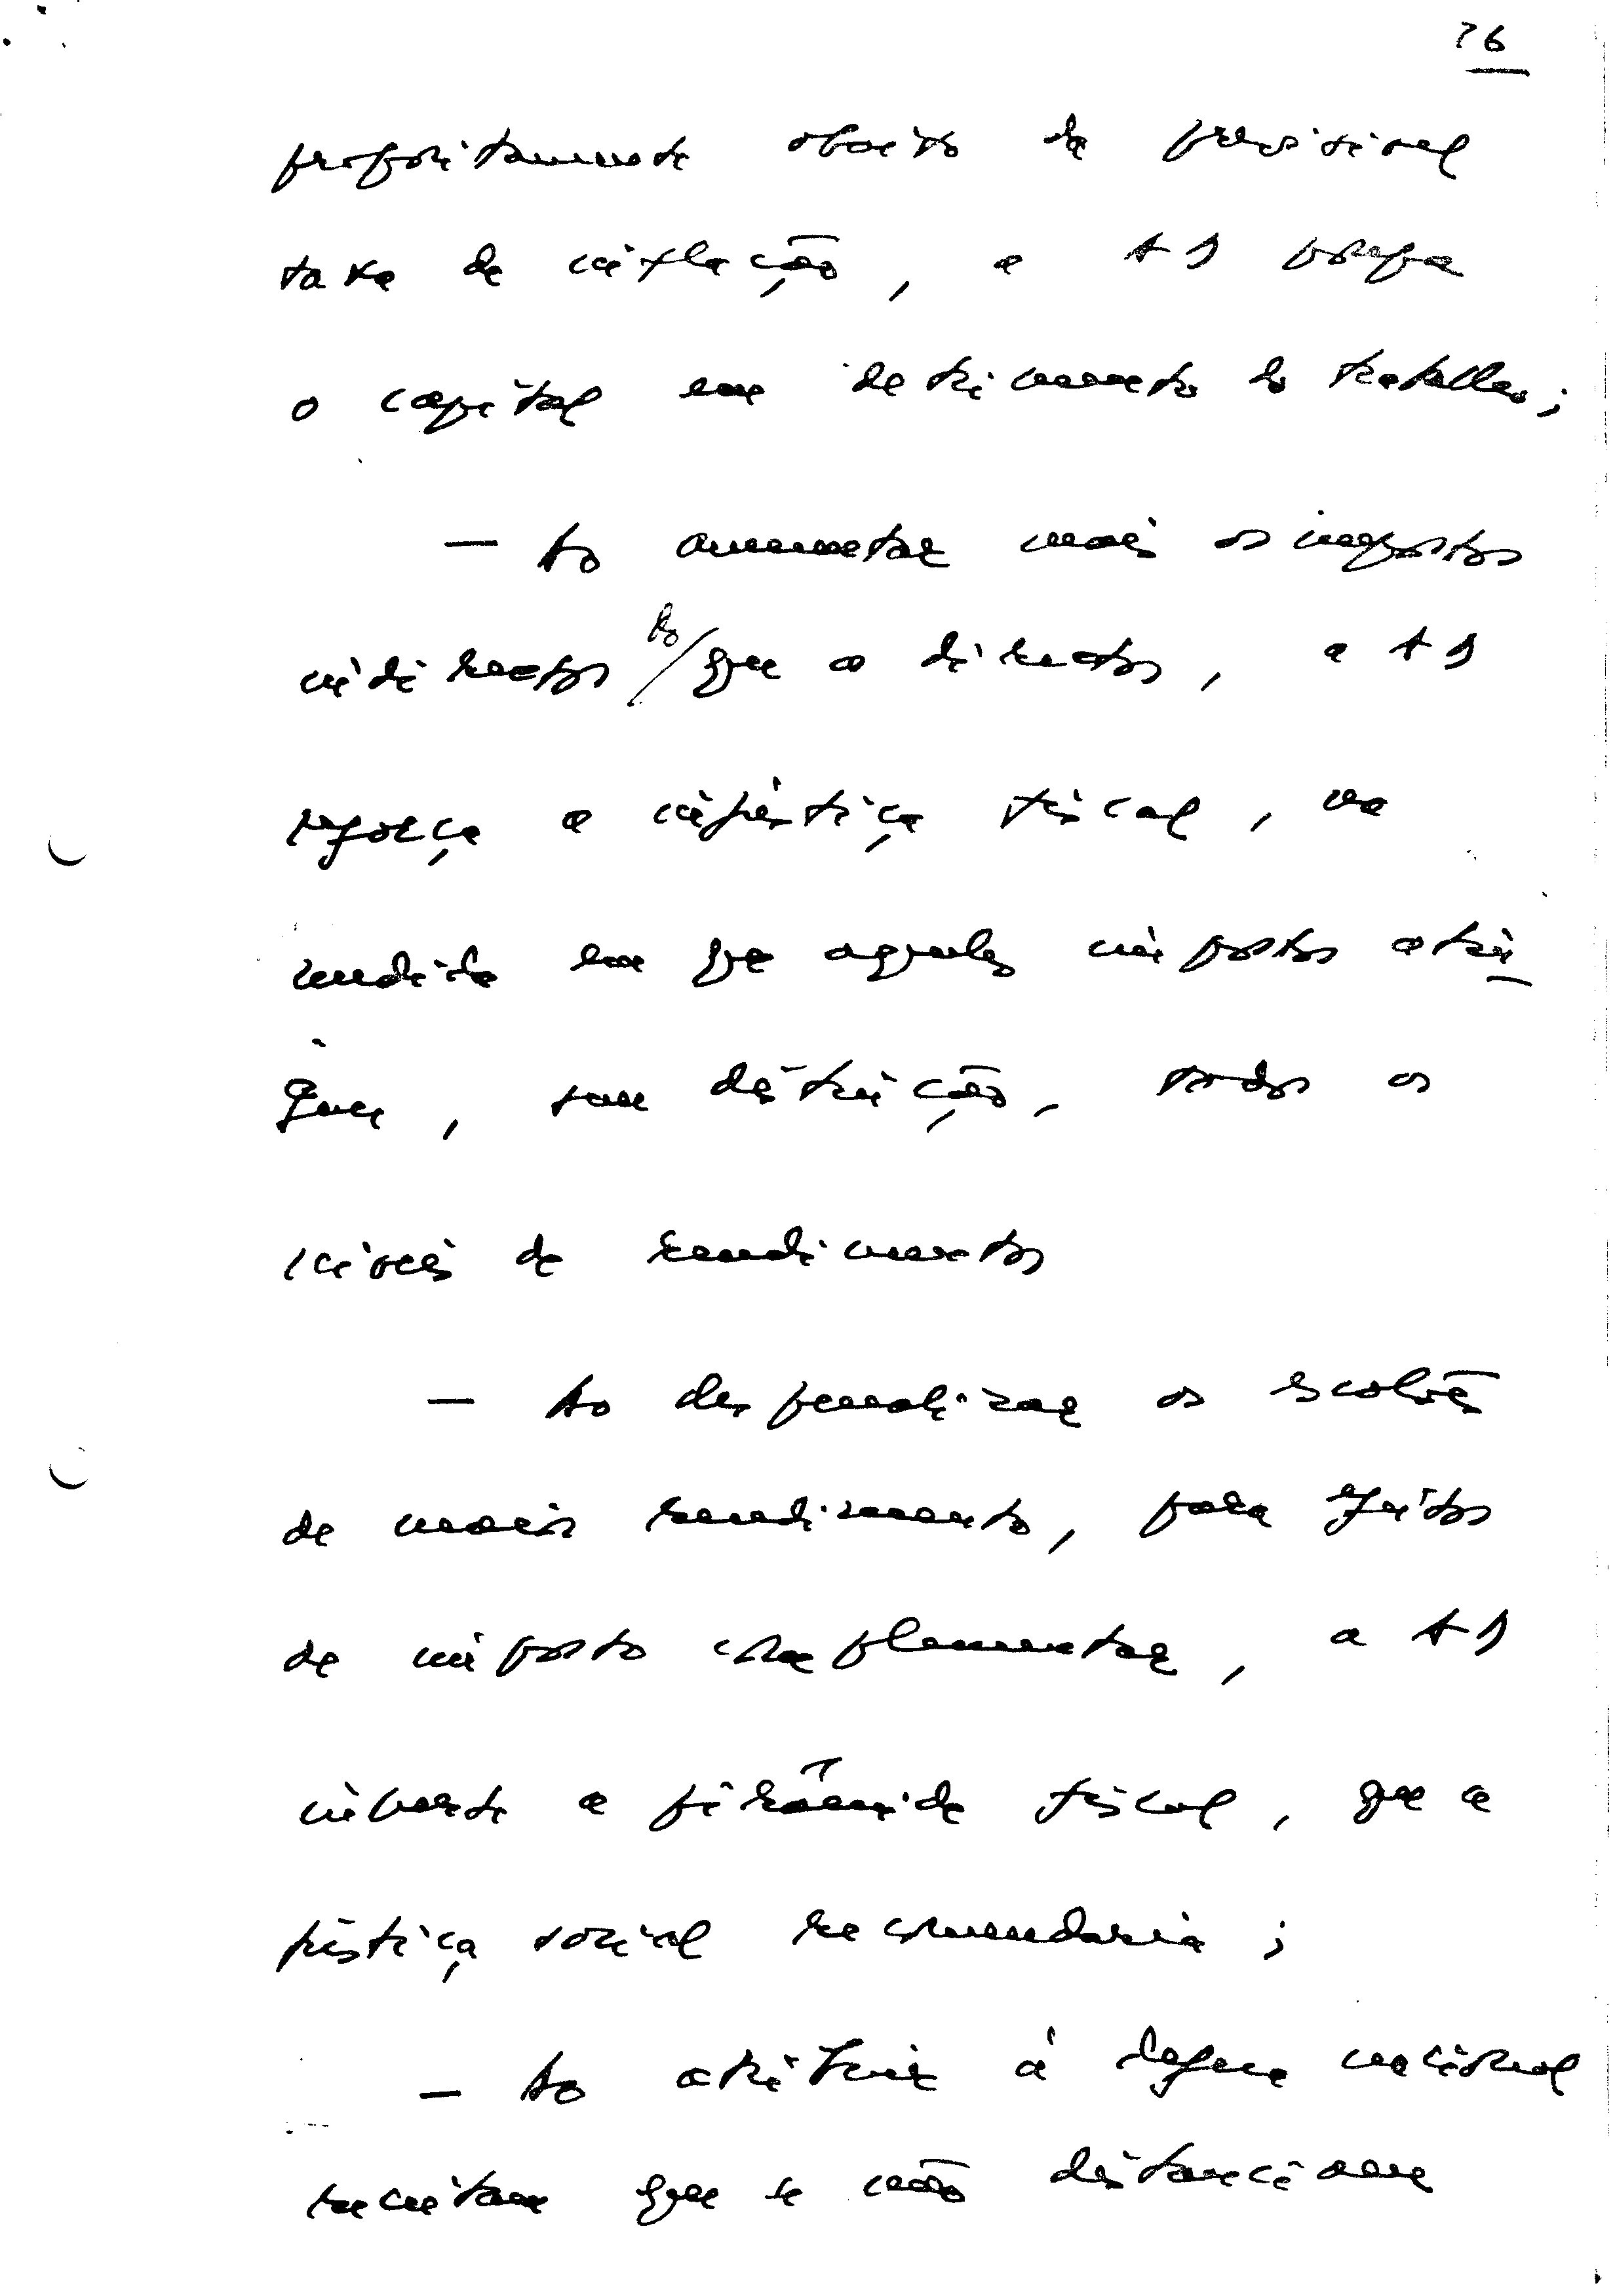 76
propositamente abaixo da previsível
taxa de inflação, a AD poupa
o capital em detrimento do trabalho;
— Ao aumentar mais os impostos
indirectos do que os directos, a AD
reforça a injustiça fiscal, na
medida em que aqueles impostos atin
gem, sem distinção, todos os
níveis de rendimentos
— Ao despenalizar os escalões
de maior rendimento, para efeitos
de imposto complementar, a AD
inverte a pirâmide fiscal, que a
justiça social recomendaria;
— Ao atribuir à defesa nacional
que se não distanciam